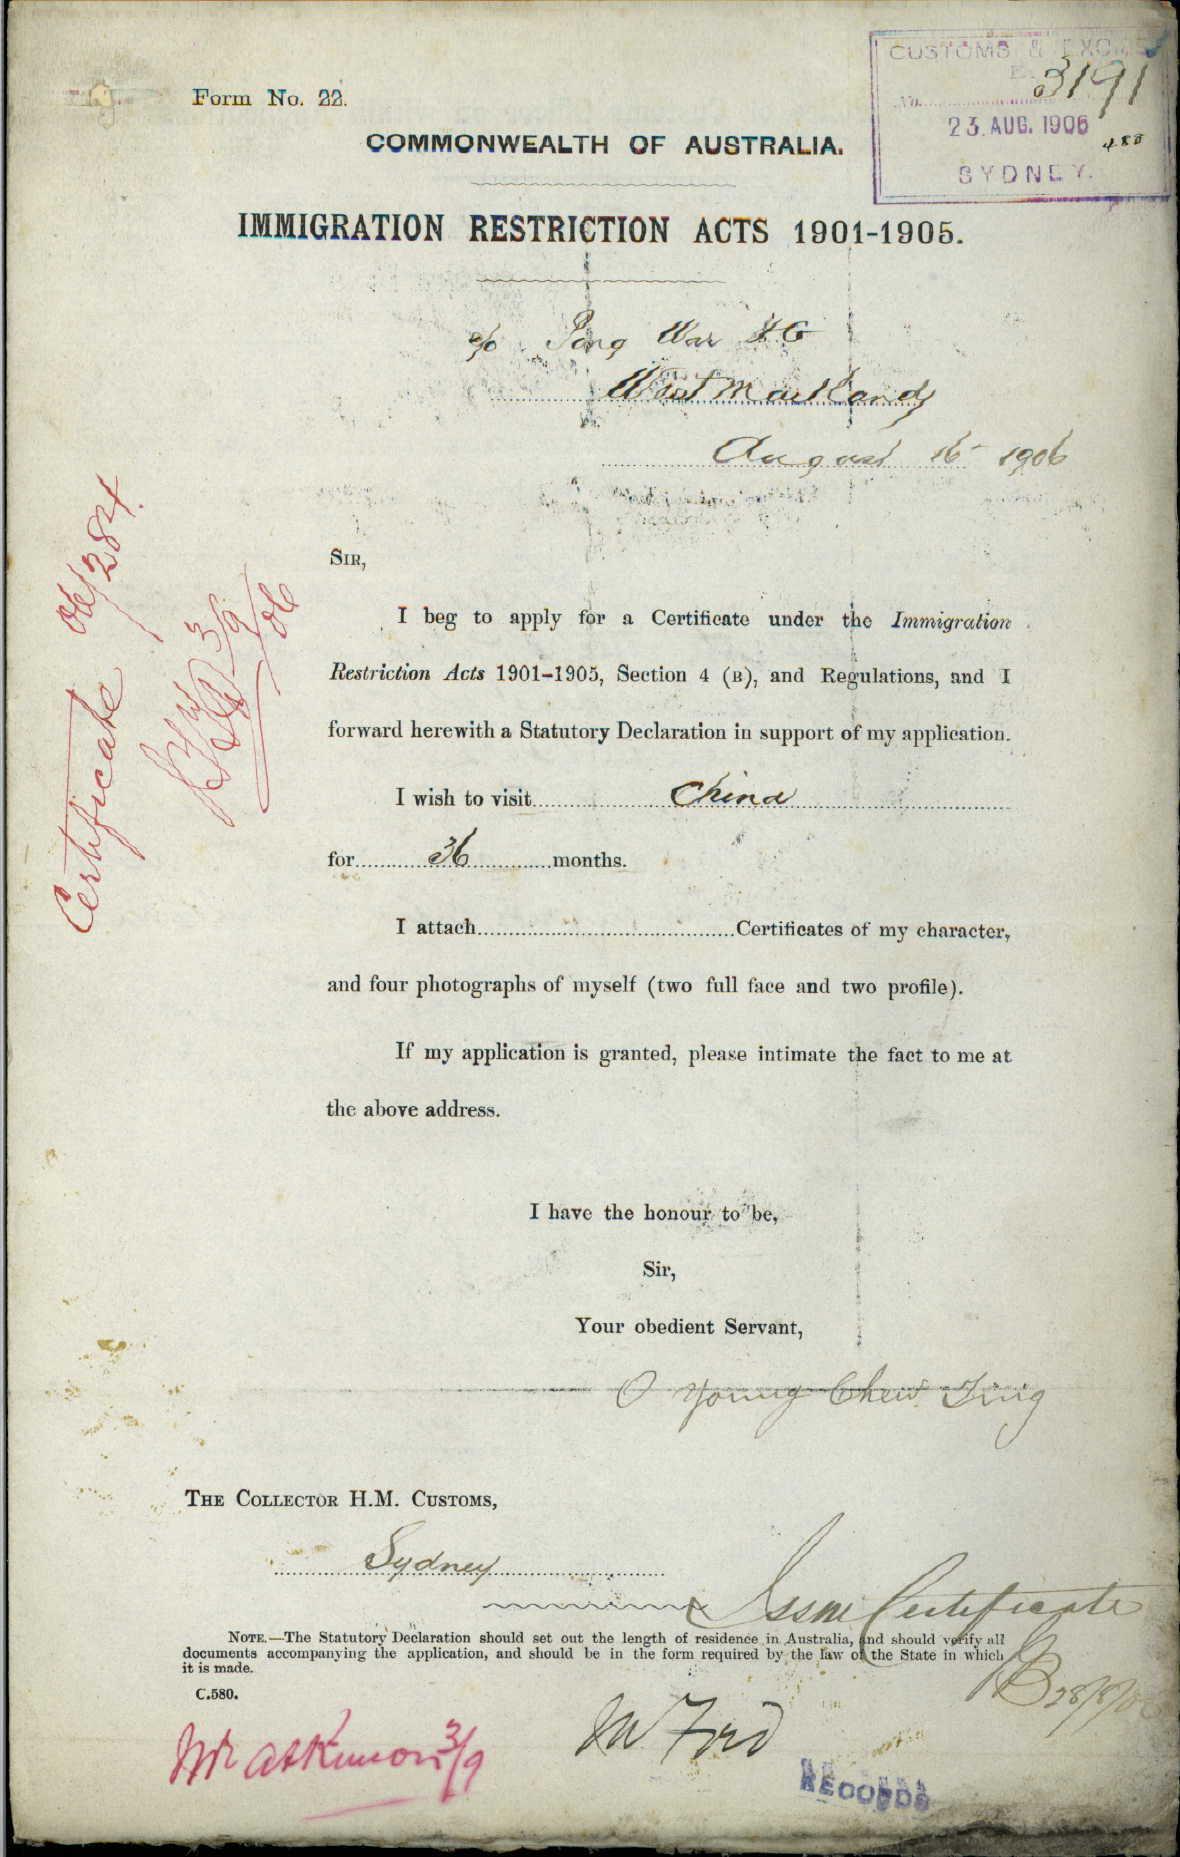 Form No. 22.
CUSTOMS & EXCISE
No. 3191
23. AUG. 1906
488
SYDNEY.
COMMONWEALTH OF AUSTRALIA.
IMMIGRATION RESTRICTION ACTS 1901-1905.
c/o Pong War & Co
West Maitland
August 16 1906
SIR,
I beg to apply for a Certificate under the Immigration
Restriction Acts 1901-1905, Section 4 (B), and Regulations, and I
forward herewith a Statutory Declaration in support of my application.
I wish to visit China
for 36 months.
I attach Certificates of my character,
and four photographs of myself (two full face and two profile).
If my application is granted, please intimate the fact to me at
the above address.
Certificate 06/284.
3/9/06
I have the honour to be,
Sir,
Your obedient Servant,
O Young Chew Ting
THE COLLECTOR H.M. CUSTOMS,
Sydney
Issue Certificate
28/8/06
NOTE.—The Statutory Declaration should set out the length of residence in Australia, and should verify all
documents accompanying the application, and should be in the form required by the law of the State in which
it is made.
C.580.
Mr Atkinson 3/9
Mr Ford
RECORDS